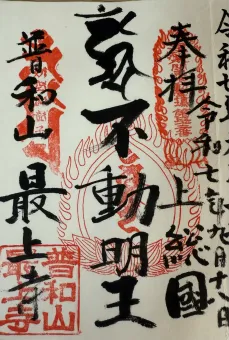 奉拝
上総國
不動明王
普和山
最上寺
令和七年九月十八日
普和山
最上寺